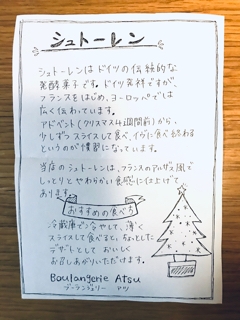 シュトーレン
シュトーレンはドイツの伝統的な
発酵菓子です。ドイツ発祥ですが、
フランスをはじめ、ヨーロッパでは
広く伝わっています。
アドベント(クリスマス4週間前)から、
少しずつスライスして食べ、イヴに食べ終わる
というのが慣習になっています。
当店のシュトーレンは、フランスのアルザス風で
しっとりとやわらかい食感に仕上げて
あります。
おすすめの食べ方
冷蔵庫で冷やして、薄く
スライスして食べると、ちょっとした
デザートとして おいしく
お召しあがりいただけます。
Boulangerie Atsu
ブーランジェリー アツ